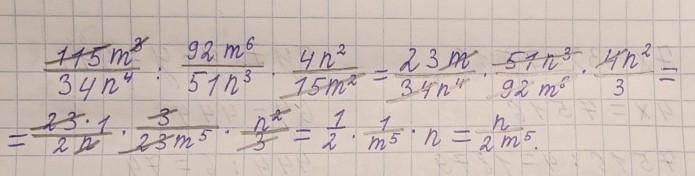 115m³/34n⁴ : 92m⁶/51n³ · 4n²/15m² = 23m/34n⁴ · 51n³/92m⁶ · 4n²/3 =
= 23·1/2n · 3/23m⁵ · n²/3 = 1/2 · 1/m⁵ · n = n/2m⁵.